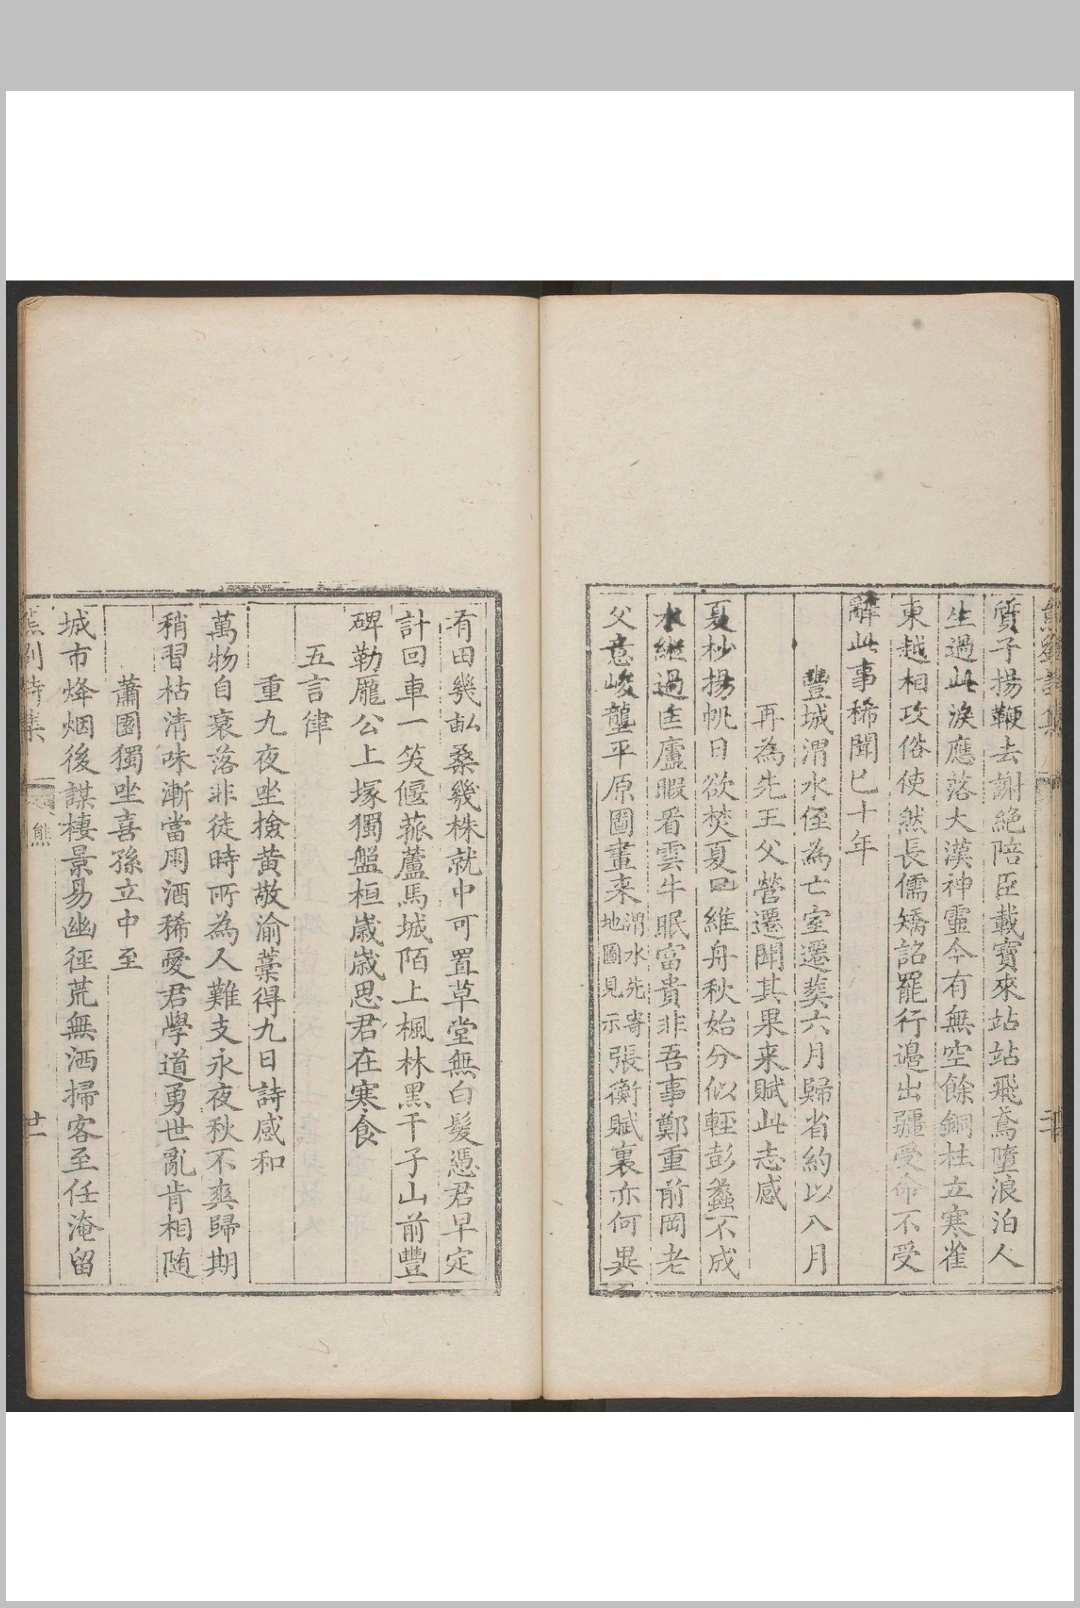 質子揚鞭去謝絶陪臣載寳來站站飛鳶墮浪泊人
生過此淚應落大漢神靈今有無空餘銅柱立寒雀
東越相攻俗使然長儒矯詔罷行邊出疆受命不受
辭此事稀聞已十年
豐城渭水侄為亡室遷葬六月歸省約以八月
再為先王父營遷聞其果來賦此志感
夏杪揚帆日欲焚夏口維舟秋始分似輕彭蠡不成
水繼過匡廬暇看雲牛眠富貴非吾事鄭重前岡老
父意峻壟平原圖畫来渭水先寄地圖見示張衡賦裏亦何異
有田㡬畝桑㡬株就中可置草堂無白髮憑君早定
計回車一笑偃菰蘆馬城陌上楓林黑干子山前豐
碑勒龐公上塚獨盤桓歲歲思君在寒食
五言律
重九夜坐撿黄敬渝藁得九日詩感和
萬物自衰落非徒時所為人難支永夜秋不爽歸期
稍習枯清味漸當用酒稀愛君學道勇世亂肯相随
蕭園獨坐喜孫立中至
城市烽烟後謀棲景易幽徑荒無洒掃客至任淹留
熊劉詩集
熊
廿一